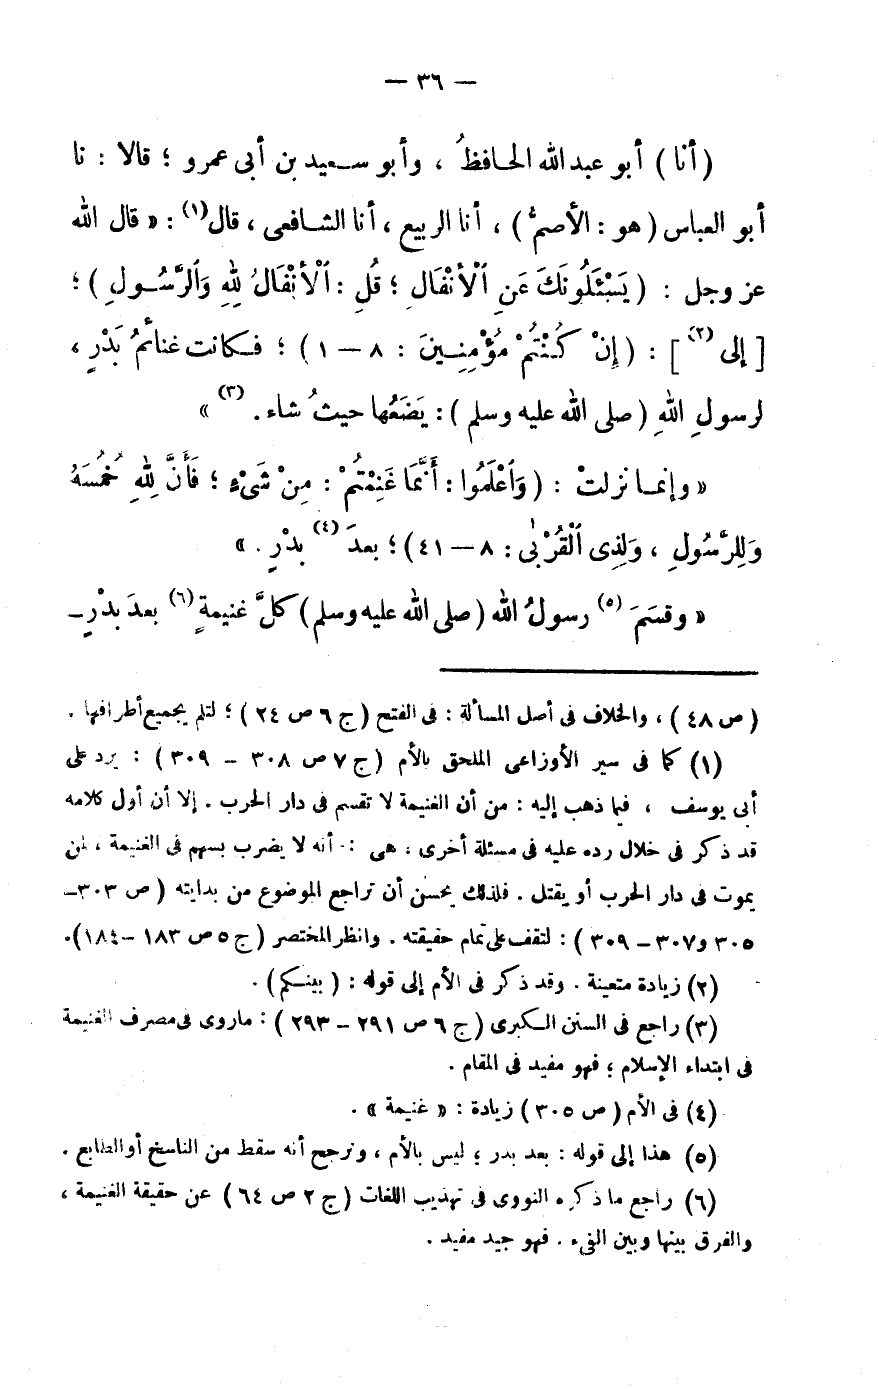 — ٣٦ —
(أنا) أبو عبد الله الحافظُ ، وأبو سعيد بن أبى عمرو ؛ قالا : نا
أبو العباس (هو : الأصمُّ) ، أنا الربيع ، أنا الشافعى ، قال(١) : « قال الله
عز وجل : (يَسْئَلُونَكَ عَنِ ٱلْأَنْفَالِ ؛ قُلِ : ٱلْأَنْفَالُ لِلّهِ وَٱلرَّسُولِ) ؛
[إلى(٢)] : (إِنْ كُنْتُمْ مُؤْمِنِينَ : ٨ — ١) ؛ فكانت غنائمُ بَدْرٍ ،
لرسولِ اللهِ (صلى الله عليه وسلم) : يَضَعُها حيثُ شاء .(٣) »
« وإنما نزلتْ : (وَٱعْلَمُوا : أَنَّمَا غَنِمْتُمْ : مِنْ شَىْءٍ ؛ فَأَنَّ لِلّهِ خُمُسَهُ
وَلِلرَّسُولِ ، وَلِذِى ٱلْقُرْبٰى : ٨ — ٤١) ؛ بعدَ(٤) بدْرٍ . »
« وقسَمَ(٥) رسولُ الله (صلى الله عليه وسلم) كلَّ غنيمةٍ(٦) بعدَ بدْرٍ ـ
(ص ٤٨) ، والخلاف فى أصل المسألة : فى الفتح (ج ٦ ص ٢٤) ؛ لتلم بجميع أطرافها .
(١) كما فى سير الأوزاعى الملحق بالأم (ج ٧ ص ٣٠٨ ـ ٣٠٩) : يرد على
أبى يوسف ، فيما ذهب إليه : من أن الغنيمة لا تقسم فى دار الحرب . إلا أن أول كلامه
قد ذكر فى خلال رده عليه فى مسئلة أخرى ، هى : أنه لا يضرب بسهم فى الغنيمة ، لمن
يموت فى دار الحرب أو يقتل . فلذلك يحسن أن تراجع الموضوع من بدايته (ص ٣٠٣ ـ
٣٠٥ و ٣٠٧ ـ ٣٠٩) : لتقف على تمام حقيقته . وانظر المختصر (ج ٥ ص ١٨٣ ـ ١٨٤).
(٢) زيادة متعينة . وقد ذكر فى الأم إلى قوله : (بينكم) .
(٣) راجع فى السنن الكبرى (ج ٦ ص ٢٩١ ـ ٢٩٣) : ماروى فى مصرف الغنيمة
فى ابتداء الإسلام ؛ فهو مفيد فى المقام .
(٤) فى الأم (ص ٣٠٥) زيادة : « غنيمة » .
(٥) هذا إلى قوله : بعد بدر ؛ ليس بالأم ، ونرجح أنه سقط من الناسخ أو الطابع .
(٦) راجع ما ذكره النووى فى تهذيب اللغات (ج ٢ ص ٦٤) عن حقيقة الغنيمة ،
والفرق بينها وبين الفىء . فهو جيد مفيد .